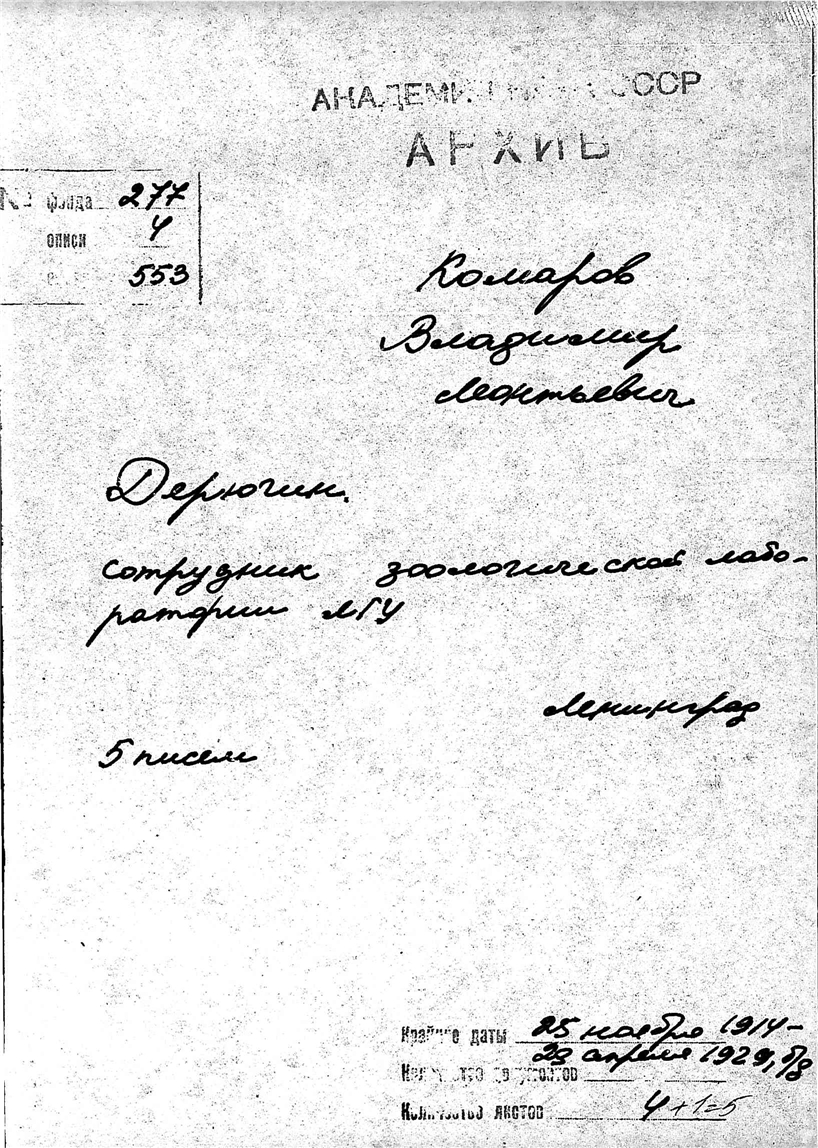 АКАДЕМИЯ НАУК СССР
АРХИВ
№ фонда 277
описи 4
553
Комаров
Владимир
Леонтьевич
Дерюгин.
сотрудник зоологической лабо-
ратории ЛГУ
Ленинград
5 писем
Крайние даты 25 ноября 1914 –
29 апреля 1929, б/д
Количество документов
Количество листов 4+1=5